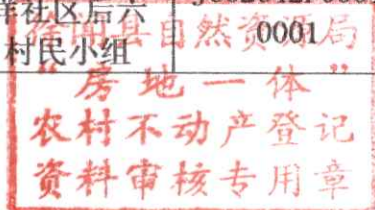 洋社区后六
村民小组
0001
阳县自然资源局
“房地一体”
农村不动产登记
资料审核专用章